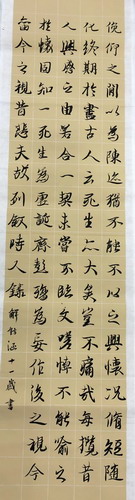 俛仰之間以為陳迹猶不能不以之興懷況脩短隨
化終期於盡古人云死生亦大矣豈不痛哉每攬昔
人興感之由若合一契未嘗不臨文嗟悼不能喻之
於懷固知一死生為虛誕齊彭殤為妄作後之視今
亦由今之視昔悲夫故列敘時人錄 解 涵十一歲書